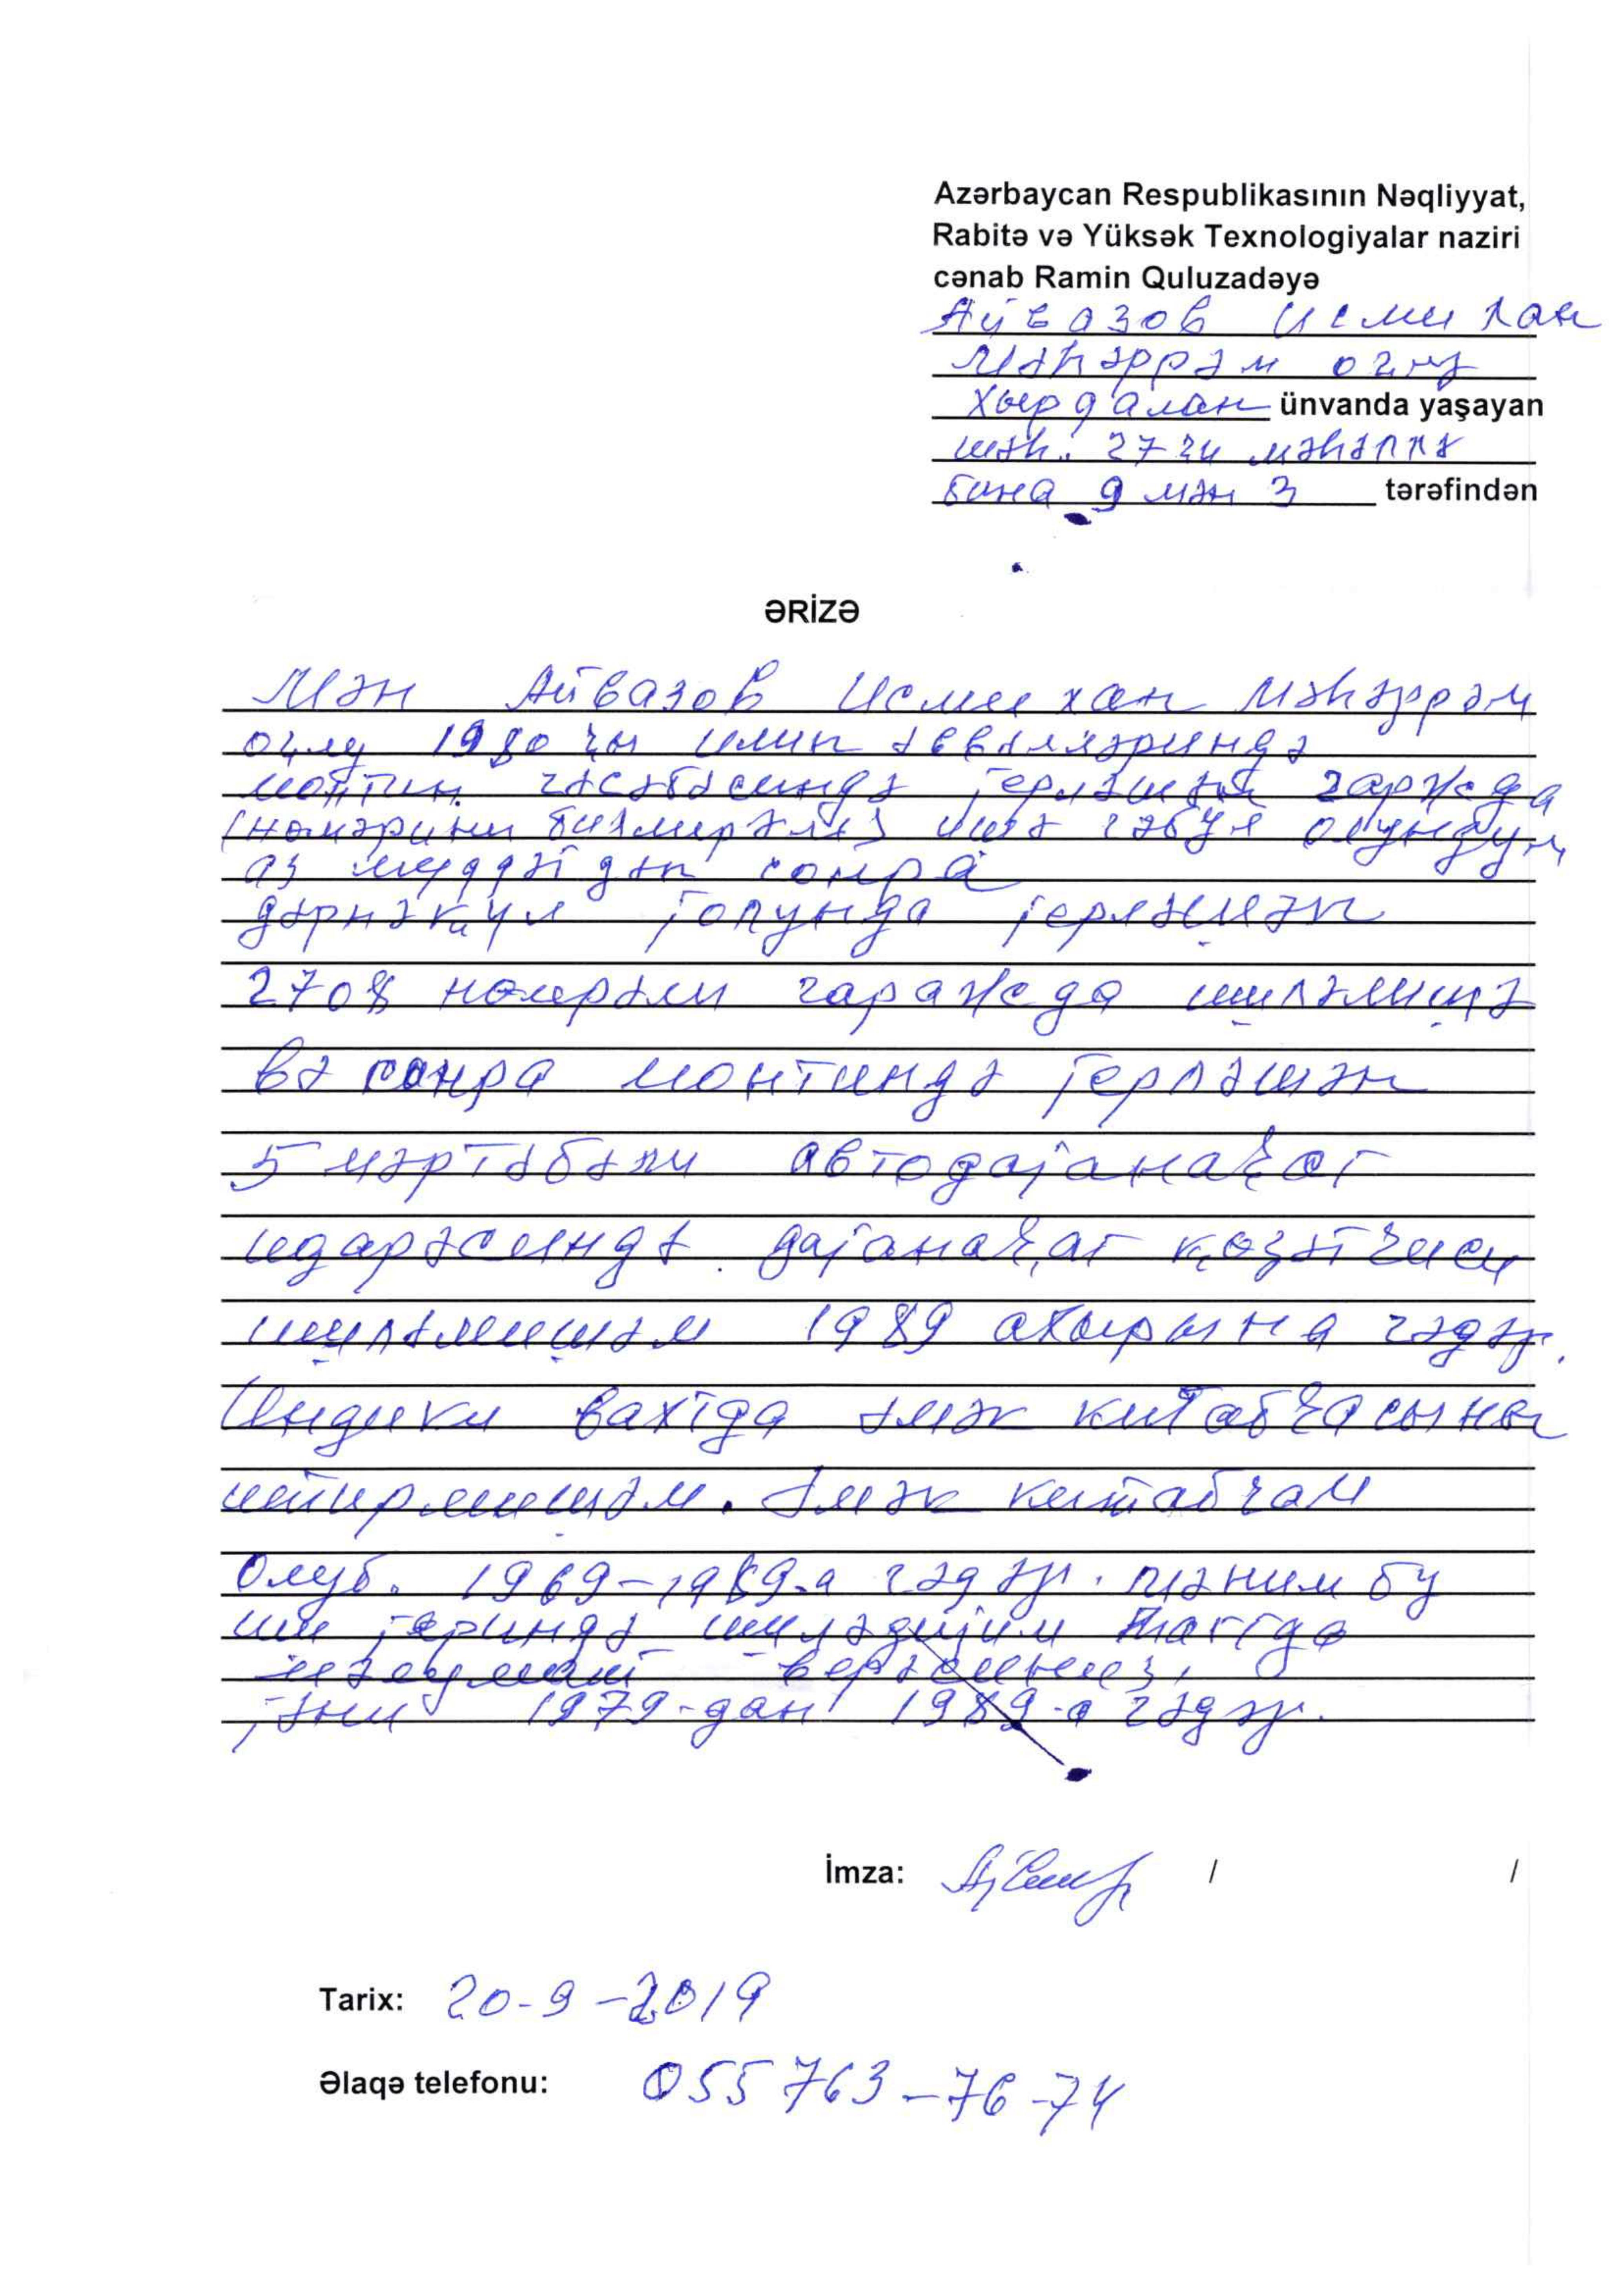 Azərbaycan Respublikasının Nəqliyyat,
Rabitə və Yüksək Texnologiyalar naziri
cənab Ramin Quluzadəyə
Айвазов Исми хан
Мәһәррәм оғлу
Хырдалан ünvanda yaşayan
шәһ. 27 24 мәһәллә
бина 9 мән 3 tərəfindən
ƏRİZƏ
Мән Айвазов Исми хан Мәһәррәм
оғлу 1980 ҹы илин әввәлләриндә
монтин гәсәбәсиндә јерләшән гаржда
(номәрини билмирәм) ишә гәбул олундум
аз муддәтдән сонра
дәрнәҝүл јолунда јерләшән
2708 номрәли гаражда ишләмишә
вә сонра монтиндә јерләшән
5 мәртәбәли автодајанаҹаг
идарәсиндә дајанаҹаг ҝөзәтчиси
ишләмишәм 1989 ахырына гәдәр.
Индики вахтда әмәк китабчасыны
итирмишәм. Әмәк китабчам
Олуб. 1969-1989-а гәдәр. мәним бу
иш јериндә ишләдијим һагда
мәлумат верәсиниз,
јәни 1979-дан 1989-а гәдәр.
İmza: / /
Tarix: 20-9-2019
Əlaqə telefonu: 055 763-76-74